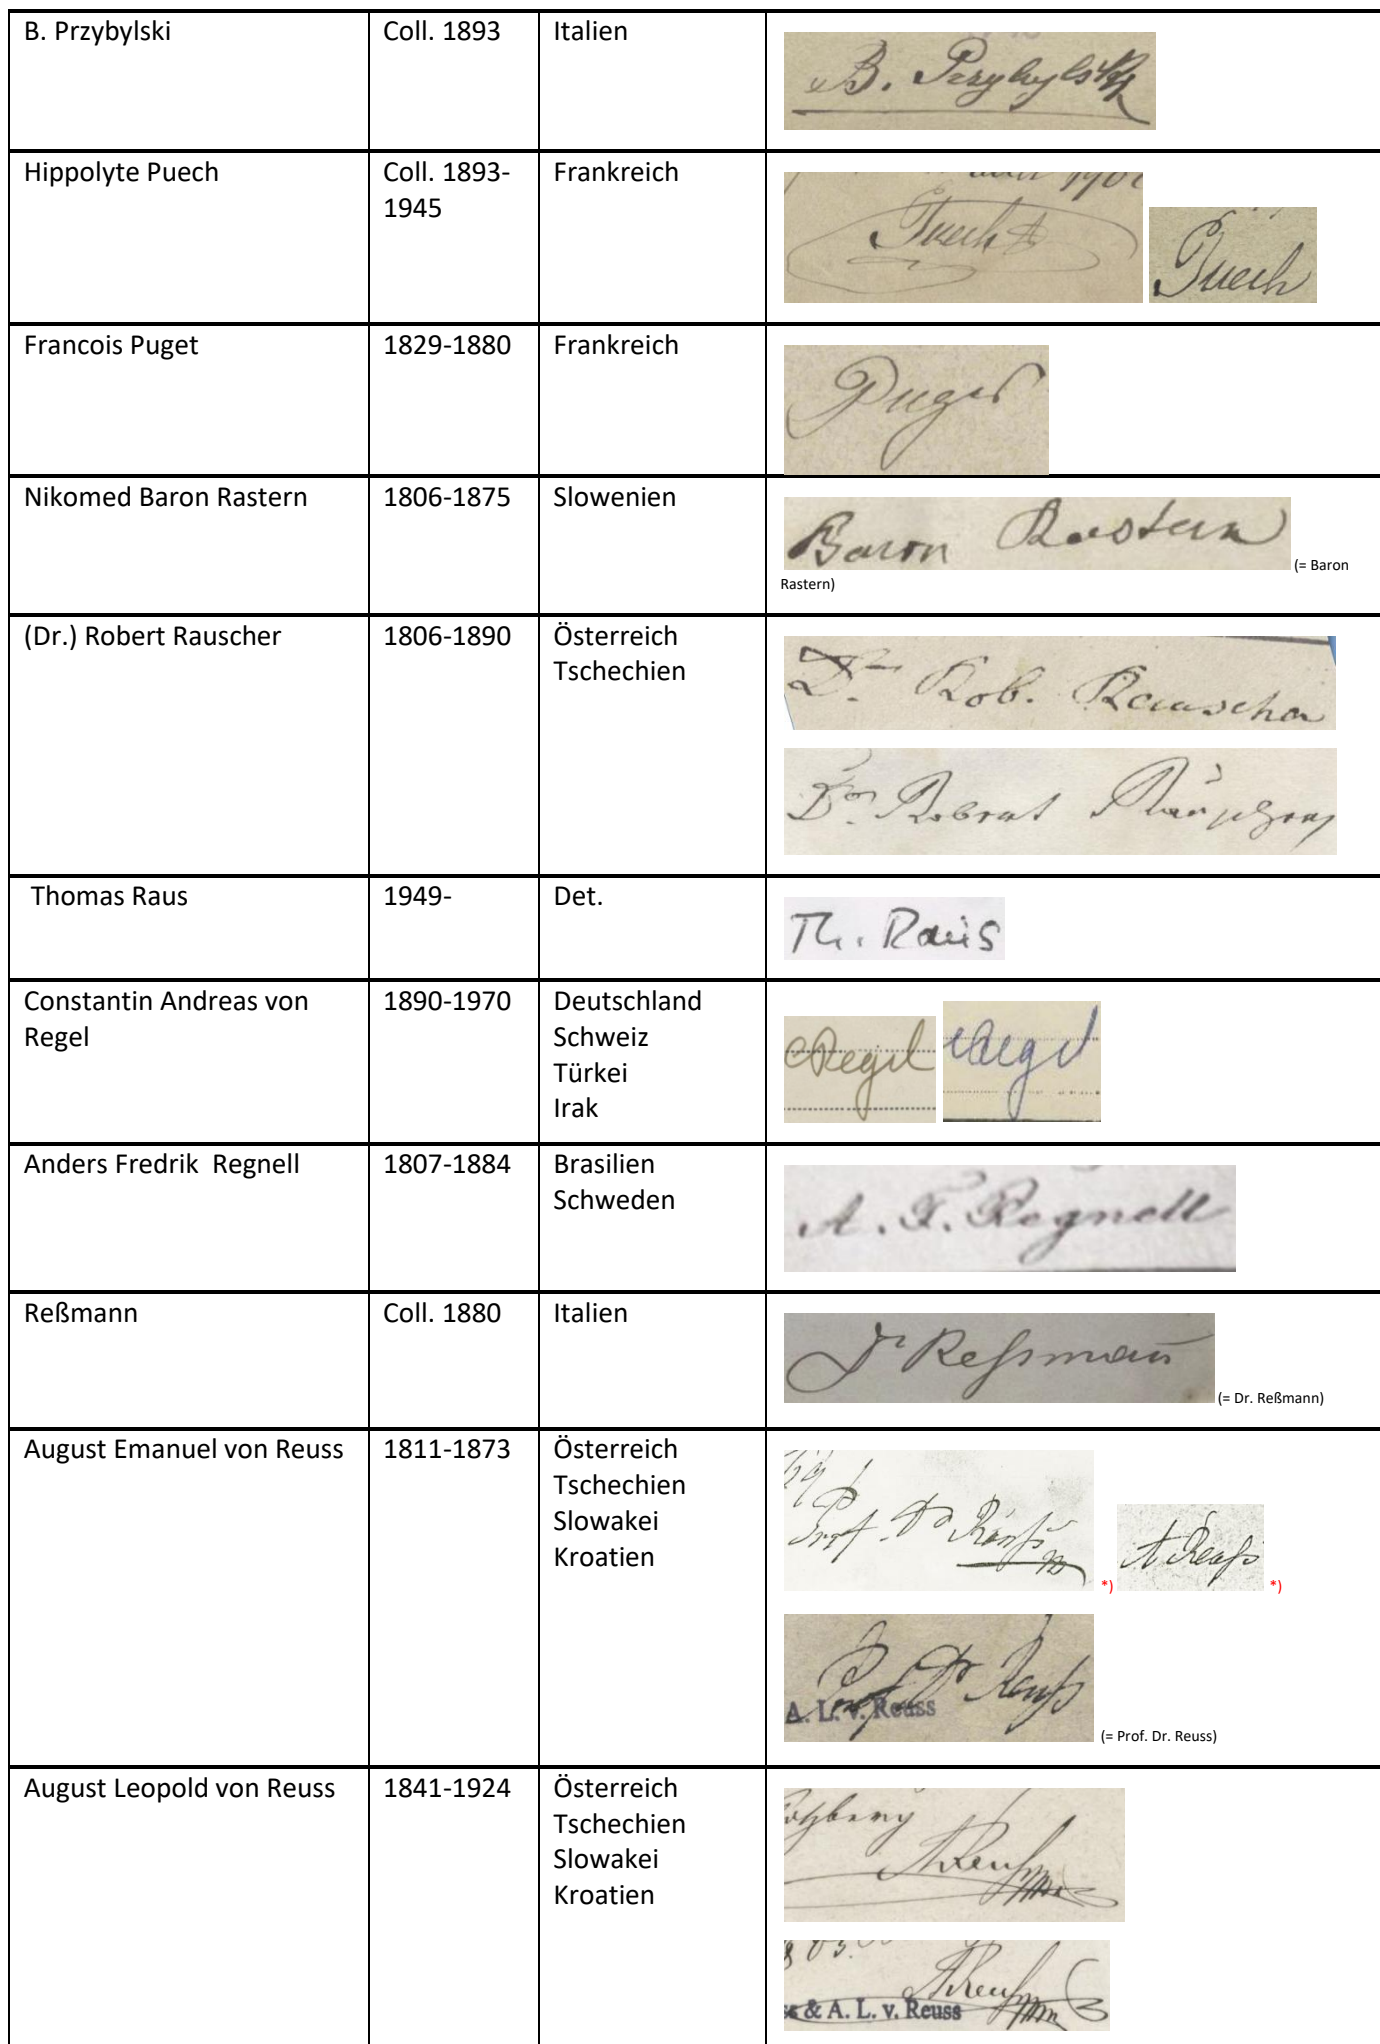 B. Przybylski
Coll. 1893
Italien
B. Przybylski
Hippolyte Puech
Coll. 1893-
1945
Frankreich
Puech
Puech
Francois Puget
1829-1880
Frankreich
Puget
Nikomed Baron Rastern
1806-1875
Slowenien
Baron Rastern
(= Baron
Rastern)
(Dr.) Robert Rauscher
1806-1890
Österreich
Tschechien
Dr. Rob. Rauscher
Dr. Robert Rauscher
Thomas Raus
1949-
Det.
Th. Raus
Constantin Andreas von
Regel
1890-1970
Deutschland
Schweiz
Türkei
Irak
CRegel
CRegel
Anders Fredrik  Regnell
1807-1884
Brasilien
Schweden
A. F. Regnell
Reßmann
Coll. 1880
Italien
Dr Reßmann
(= Dr. Reßmann)
August Emanuel von Reuss
1811-1873
Österreich
Tschechien
Slowakei
Kroatien
Prof. Dr Reuß
*)
A Reuß
*)
Prof Dr Reuß
A. L. v. Reuss
(= Prof. Dr. Reuss)
August Leopold von Reuss
1841-1924
Österreich
Tschechien
Slowakei
Kroatien
AReuß
AReuß
& A. L. v. Reuss